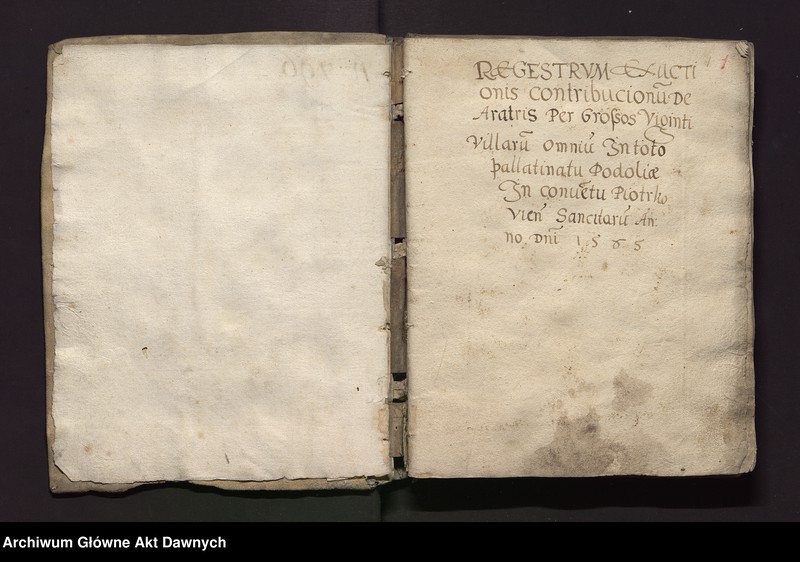 RÆGESTRVM EXACTI
onis contribucionū De
Aratris Per Grossos Viginti
Villarū omniū In toto
pallatinatu Podoliæ
In conuētu Piotrko
vien̄ Sancitarū An:
no Dn̄i 1565
1
Archiwum Główne Akt Dawnych